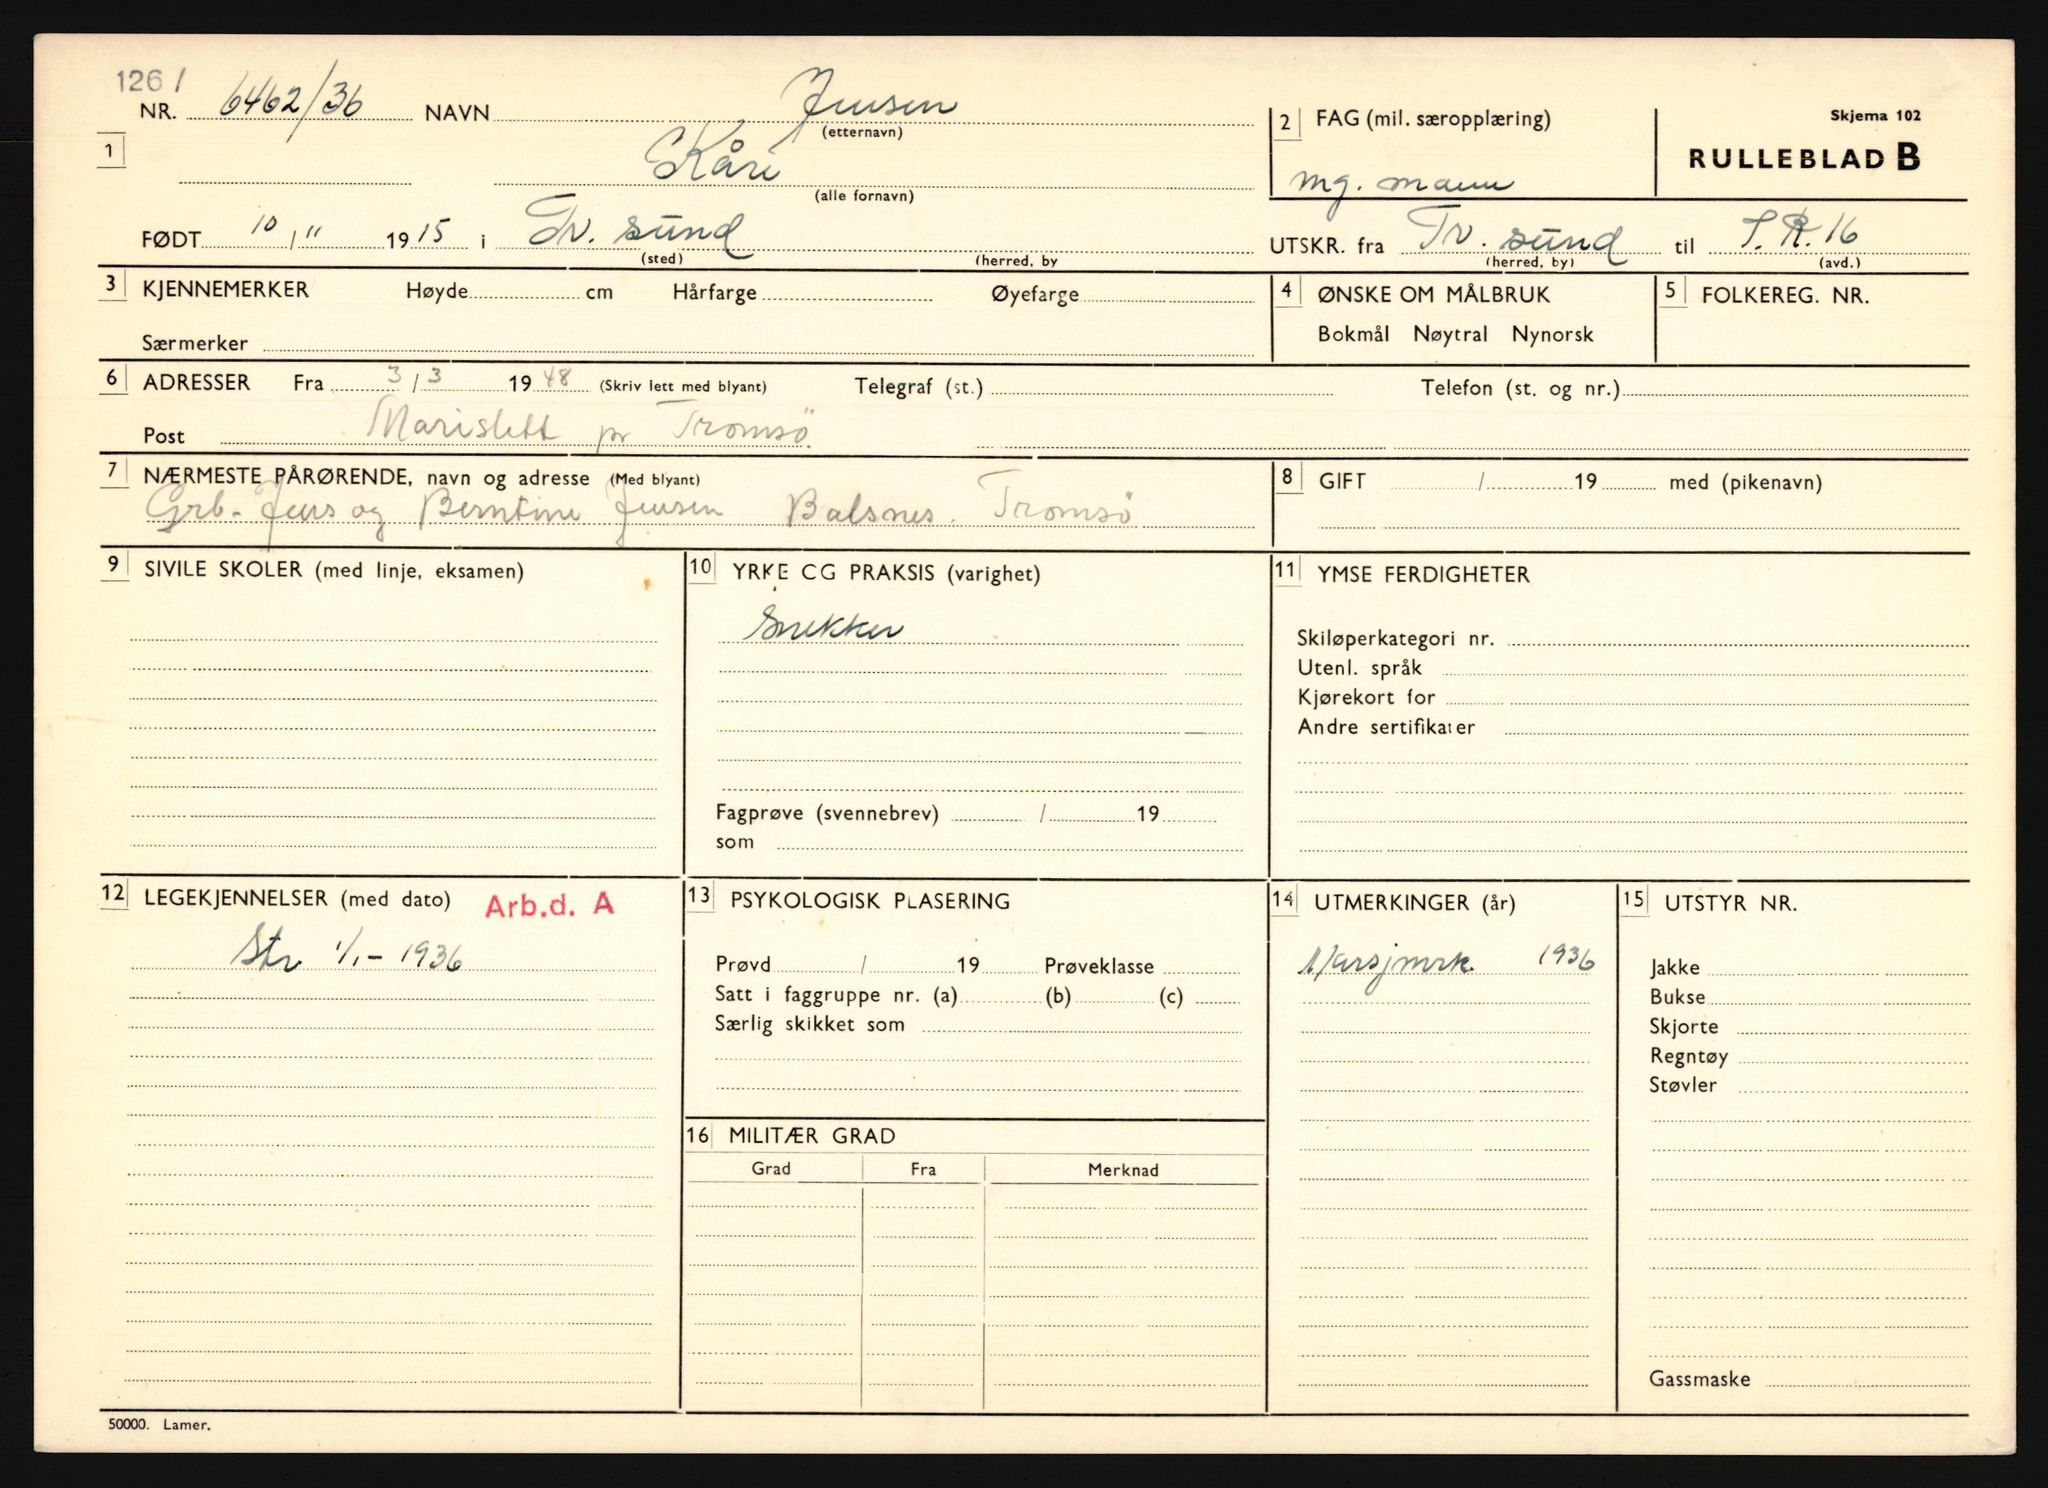 1261
NR. 6462/36 NAVN Jensen
(etternavn)
1 Kåre
(alle fornavn)
2 FAG (mil. særopplæring)
mg. mann
Skjema 102
RULLEBLAD B
FØDT 10 / 11 1915 i Tr. sund
(sted) (herred, by
UTSKR. fra Tr. sund til I.R. 16
(herred, by) (avd.)
3 KJENNEMERKER Høyde cm Hårfarge Øyefarge
Særmerker
4 ØNSKE OM MÅLBRUK
Bokmål Nøytral Nynorsk
5 FOLKEREG. NR.
6 ADRESSER Fra 3 / 3 1948 (Skriv lett med blyant) Telegraf (st.) Telefon (st. og nr.)
Post Marislett pr Tromsö.
7 NÆRMESTE PÅRØRENDE, navn og adresse (Med blyant)
Grb. Jens og Berntine Jensen Balsnes. Tromsö
8 GIFT / 19 med (pikenavn)
9 SIVILE SKOLER (med linje, eksamen)
10 YRKE CG PRAKSIS (varighet)
Snekker
Fagprøve (svennebrev) / 19
som
11 YMSE FERDIGHETER
Skiløperkategori nr.
Utenl. språk
Kjørekort for
Andre sertifikater
12 LEGEKJENNELSER (med dato) Arb.d. A
Str 1/1 - 1936
13 PSYKOLOGISK PLASERING
Prøvd / 19 Prøveklasse
Satt i faggruppe nr. (a) (b) (c)
Særlig skikket som
14 UTMERKINGER (år)
Marsjmrk. 1936
15 UTSTYR NR.
Jakke
Bukse
Skjorte
Regntøy
Støvler
Gassmaske
16 MILITÆR GRAD
Grad Fra Merknad
50000. Lamer.